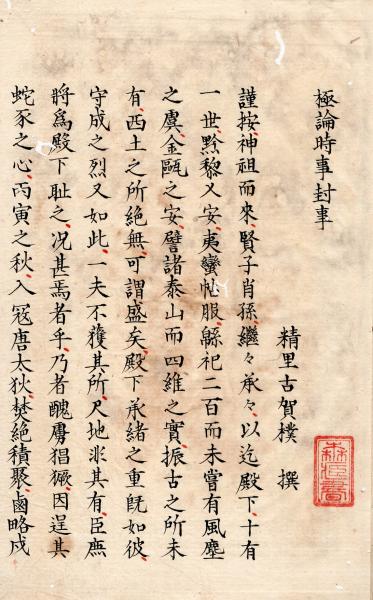 極論時事封事
精里古賀樸　撰
謹按神祖而來賢子肖孫繼々承々以迄殿下十有
一世黔黎乂安夷蠻怗服緜祀二百而未嘗有風塵
之虞金甌之安譬諸泰山而四維之實振古之所未
有西土之所絶無可謂盛矣殿下承緒之重既如彼
守成之烈又如此一夫不獲其所尺地非其有臣庶
將爲殿下耻之况甚焉者乎乃者醜虜猖獗因逞其
蛇豕之心丙寅之秋入寇唐太狄焚絶積聚鹵略戍